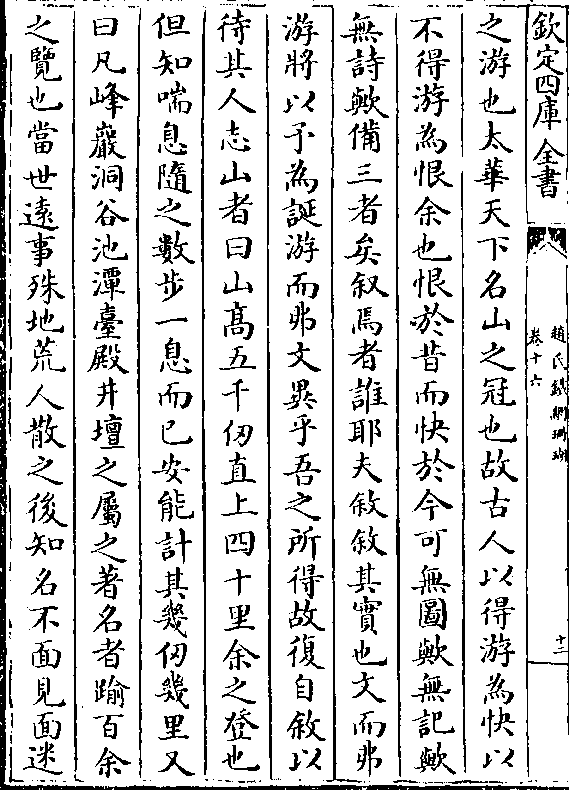 欽定四庫全書
趙氏鐵網珊瑚
卷十六
十二
之游也太華天下名山之冠也故古人以得游為快以
不得游為恨余也恨於昔而快於今可無圖歟無記歟
無詩歟備三者矣叙焉者誰耶夫敘敘其實也文而弗
游將以予為誕游而弗文異乎吾之所得故復自敘以
待其人志山者曰山髙五千仞直上四十里余之登也
但知喘息隨之數步一息而已安能計其幾仞幾里又
曰凡峰巖洞谷池潭臺殿井壇之屬之著名者踰百余
之覽也當世遠事殊地荒人散之後知名不面見面迷